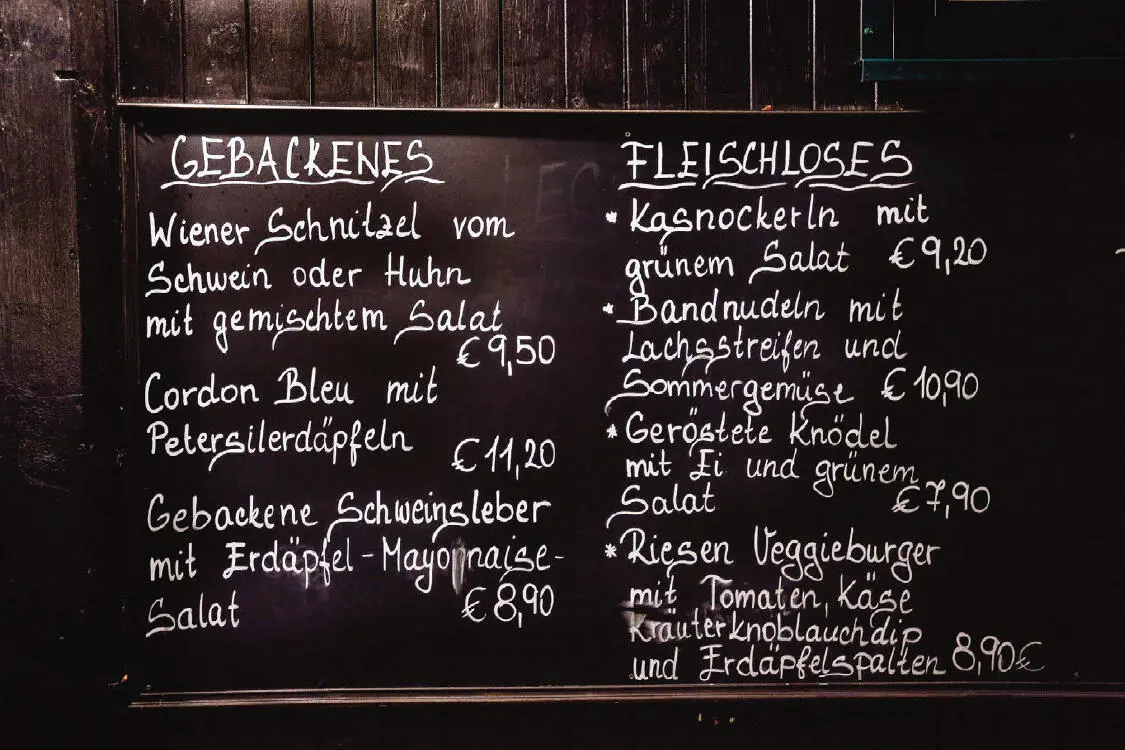 GEBACKENES
Wiener Schnitzel vom
Schwein oder Huhn
mit gemischtem Salat
€ 9,50
Cordon Bleu mit
Petersilerdäpfeln
€ 11,20
Gebackene Schweinsleber
mit Erdäpfel-Mayonnaise-
Salat € 8,90
FLEISCHLOSES
* Kasnockerln mit
grünem Salat € 9,20
* Bandnudeln mit
Lachsstreifen und
Sommergemüse € 10,90
* Geröstete Knödel
mit Ei und grünem
Salat € 7,90
* Riesen Veggieburger
mit Tomaten, Käse
Kräuterknoblauchdip
und Erdäpfelspalten 8,90€